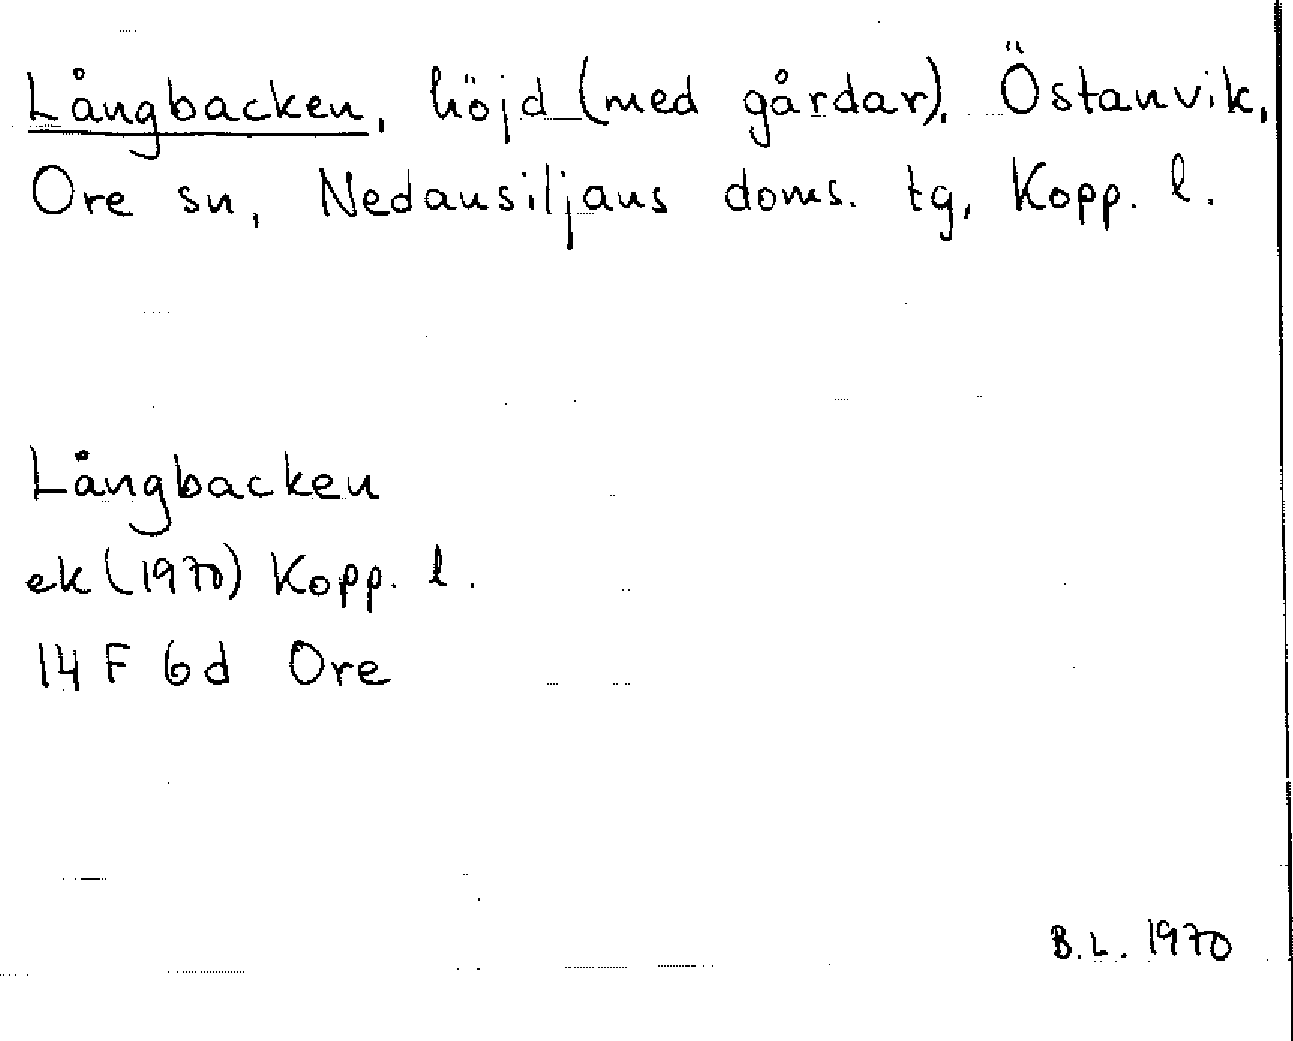 Långbacken, höjd (med gårdar), Östanvik,
Ore sn, Nedansiljans doms. tg, Kopp. l.
Långbacken
ek (1970) Kopp. l.
14 F 6 d Ore
B.L. 1970